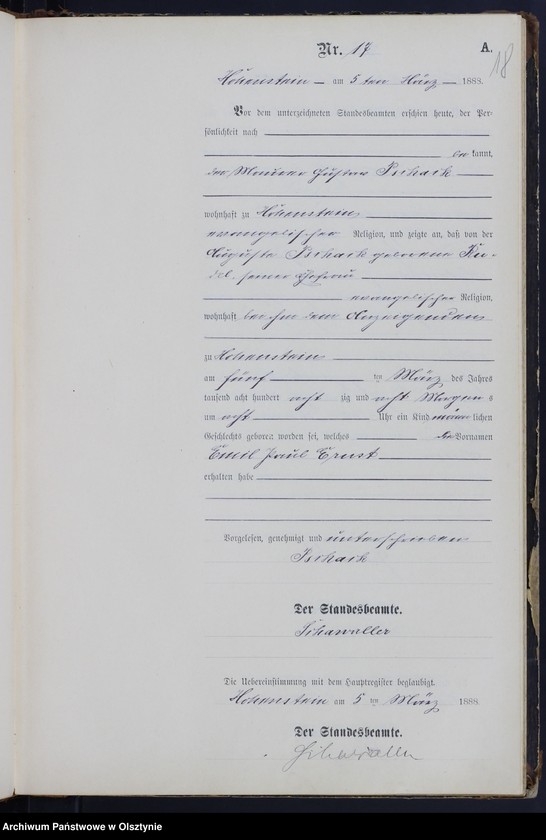 Nr. 17
A.
18
Hohenstein am 5 ten März 1888.
Vor dem unterzeichneten Standesbeamten erschien heute, der Per-
sönlichkeit nach
be kannt,
der Maurer Gustav
wohnhaft zu Hohenstein
evangelischer Religion, und zeigte an, daß von der
Auguste geborene
seiner Ehefrau
evangelischer Religion,
wohnhaft bei ihm dem Anzeigenden
zu Hohenstein
am fünf ten März des Jahres
tausend acht hundert acht zig und acht Morgen s
um acht Uhr ein Kind männ lichen
Geschlechts geboren worden sei, welches die Vornamen
Emil Paul Ernst
erhalten habe
Vorgelesen, genehmigt und unterschrieben
Der Standesbeamte.
Die Uebereinstimmung mit dem Hauptregister beglaubigt.
Hohenstein am 5 ten März 1888
Der Standesbeamte.
Archiwum Państwowe w Olsztynie